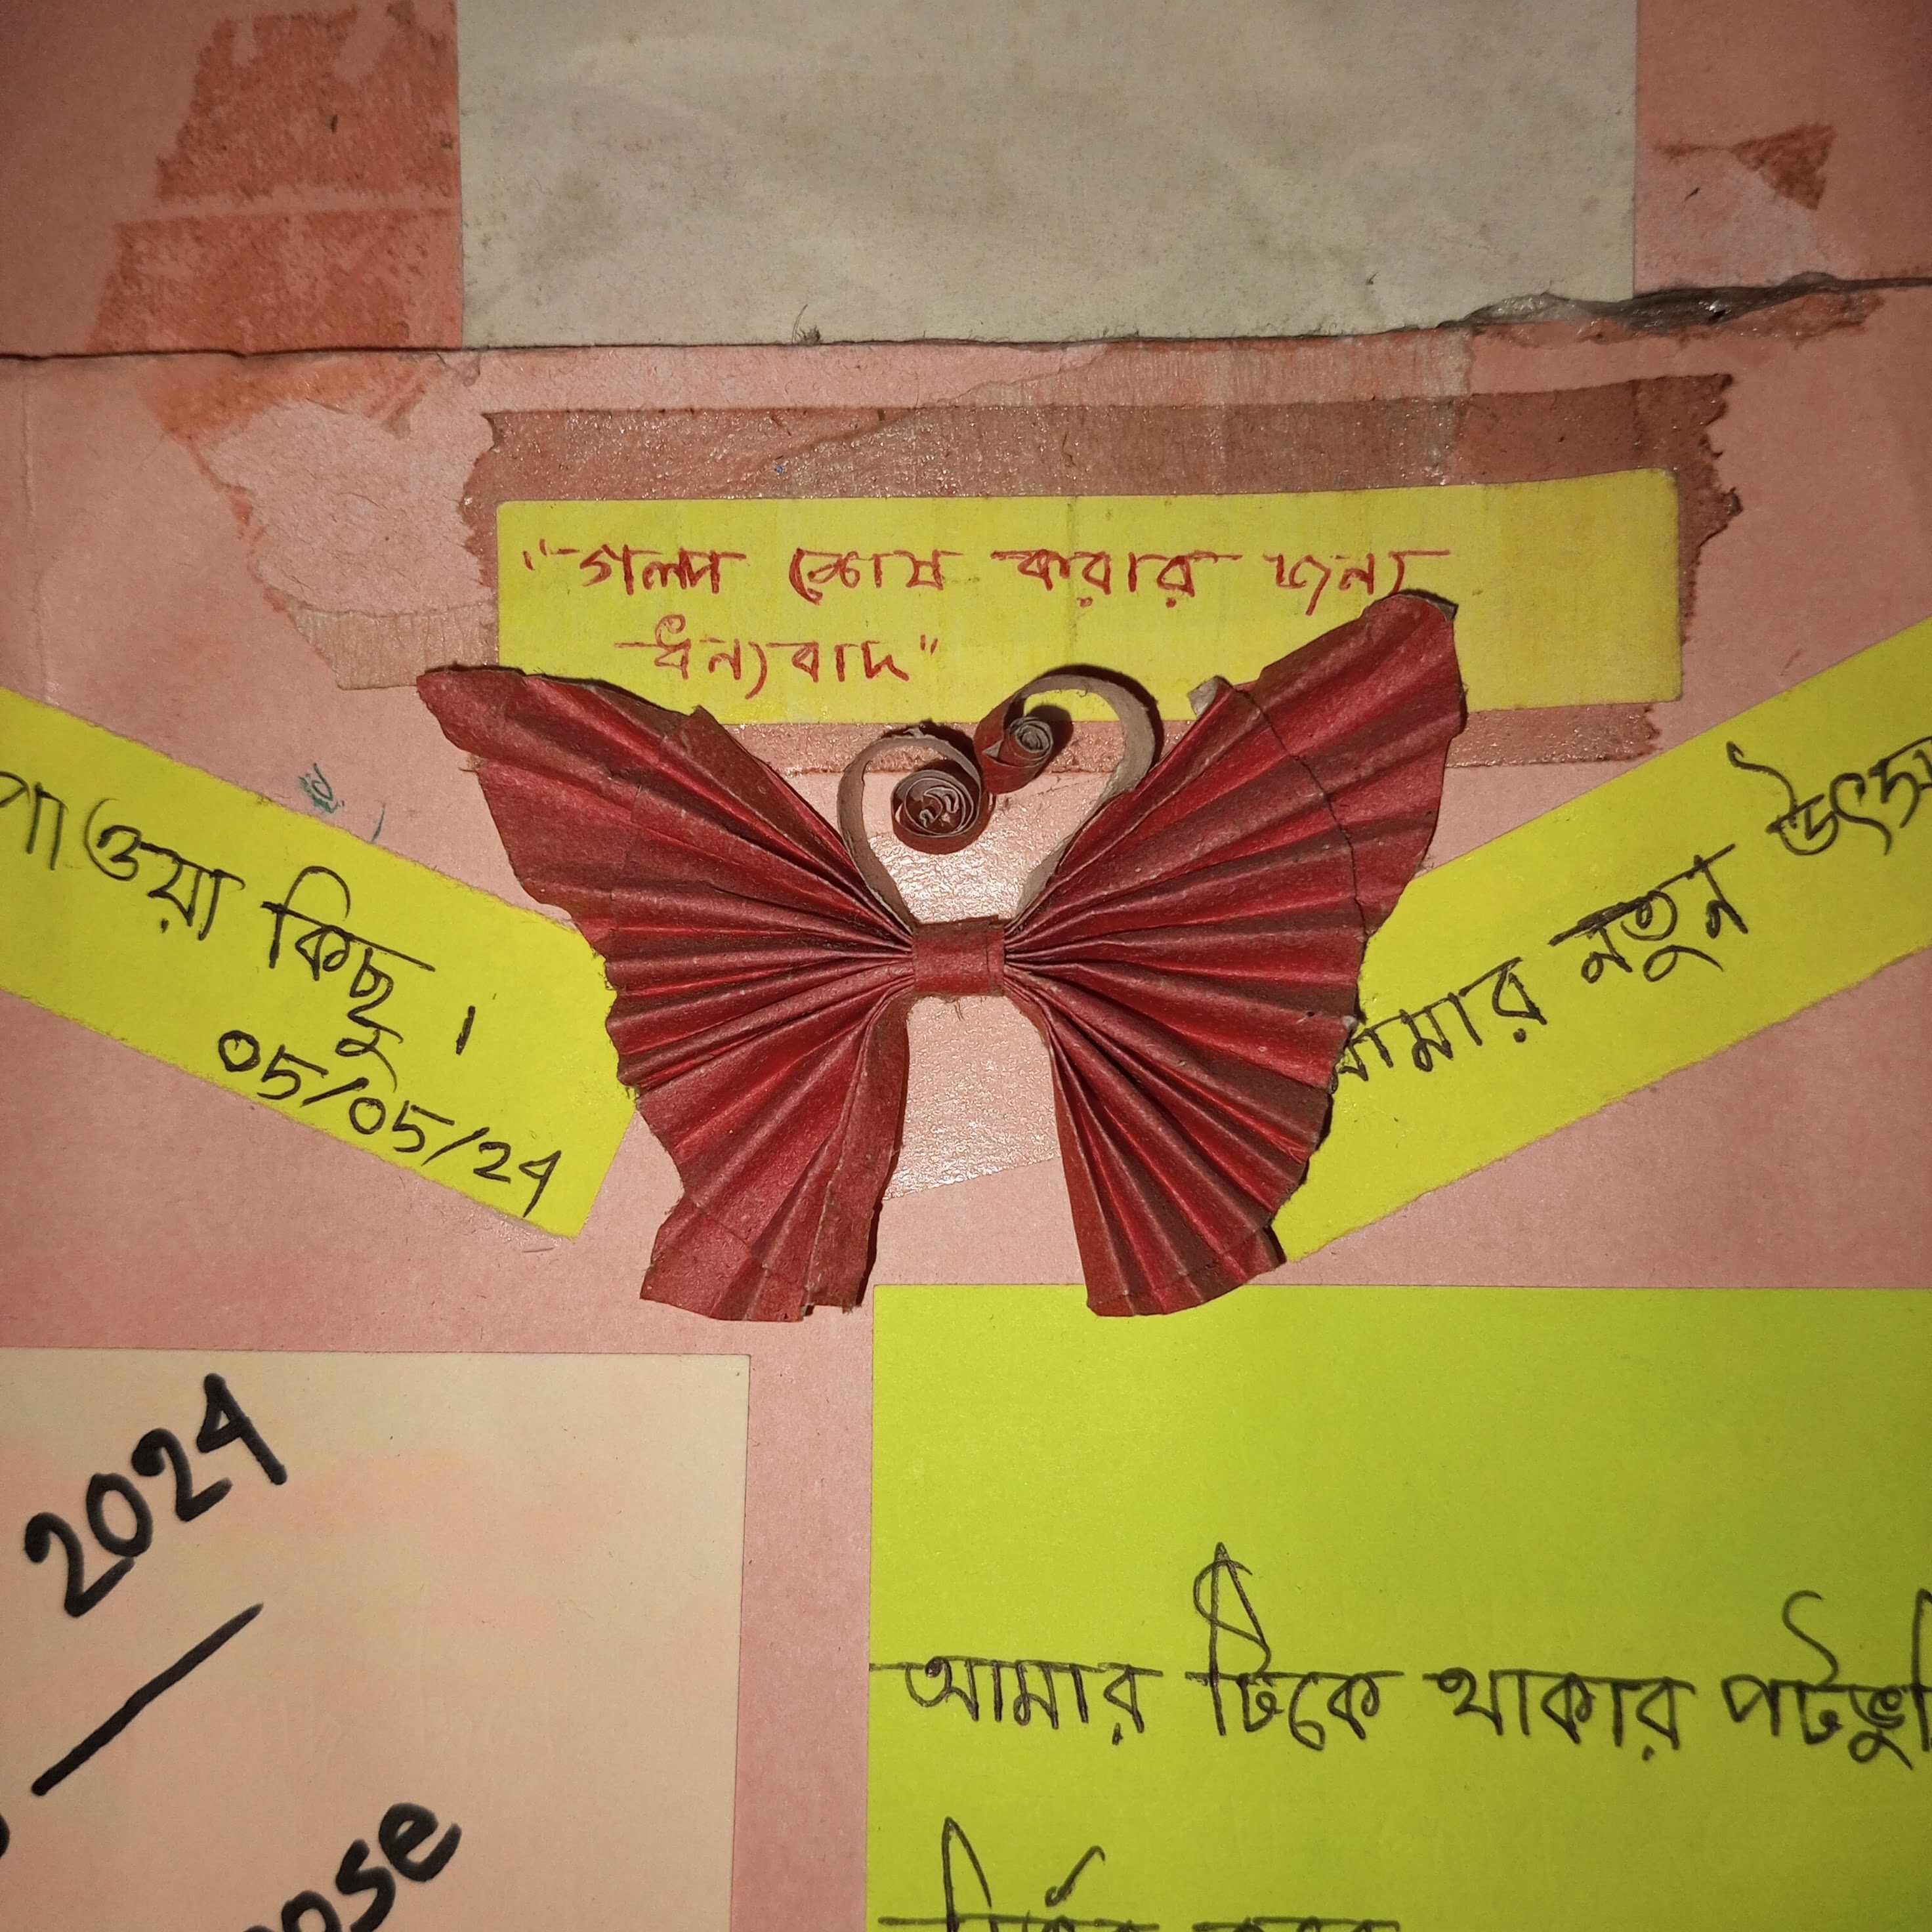 "গল্প শেষ করার জন্য
ধন্যবাদ"
পাওয়া কিছু।
05/05/24
আমার নতুন
2024
আমার টিকে থাকার